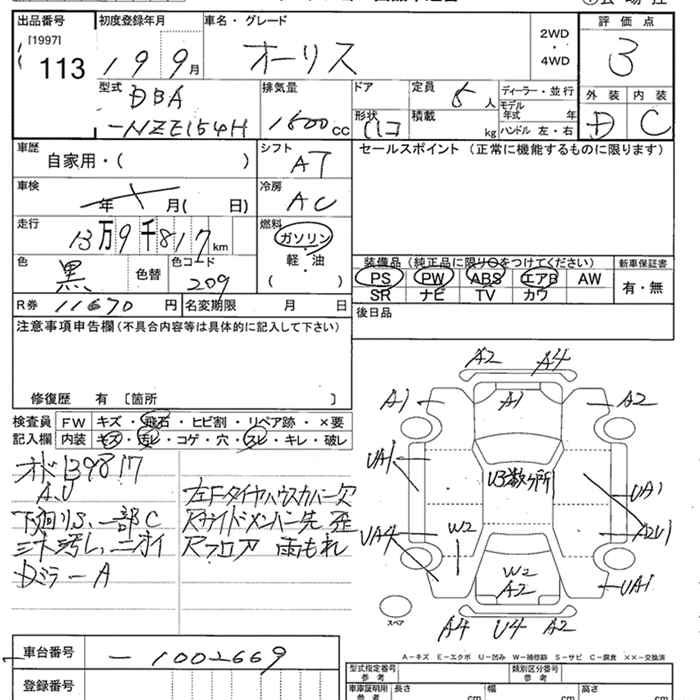 出品番号 初度登録年月 車名・グレード 評価点
[1997] 113
19 9月
オーリス
2WD・4WD
3
型式 DBA-NZE154H
排気量 1500cc
ドア
形状
定員 5人
積載 kg
ディーラー・並行
モデル年式 年
ハンドル 左・右
外装 D
内装 C
車歴 自家用・( )
シフト AT
セールスポイント (正常に機能するものに限ります)
車検 年 月( 日)
冷房 AC
走行 13万9千817km
燃料 ガソリン・軽・油 ( )
色 黒
色替
色コード 209
装備品 (純正品に限り○をつけてください) 新車保証書
PS PW ABS エアB AW
SR ナビ TV カワ
有・無
R券 11670円 名変期限 月 日
後日品
注意事項申告欄(不具合内容等は具体的に記入して下さい)
修復歴 有 [箇所 ]
検査員記入欄
FW キズ・飛石・ヒビ割・リペア跡・×要
内装 キズ・汚レ・コゲ・穴・スレ・キレ・破レ
オド139817
下廻りS、一部C
シート汚し、ニオイ
DミラーA
左Fタイヤハウスカバー欠
Rサイドメンバー先 歪
Rフロア 雨もれ
A2 A4
A1 A1 A2
UA1 U3数ヶ所 UA1
UA4 W2 A2U1
W2 A2 UA1
スペア
A4 U4 A2
A-キズ E-エクボ U-凹み W-補修跡 S-サビ C-腐食 ××-交換済
車台番号 -1002669
登録番号
型式指定番号 参考
類別区分番号 参考
車庫証明用 参考
長さ cm 幅 cm 高さ cm